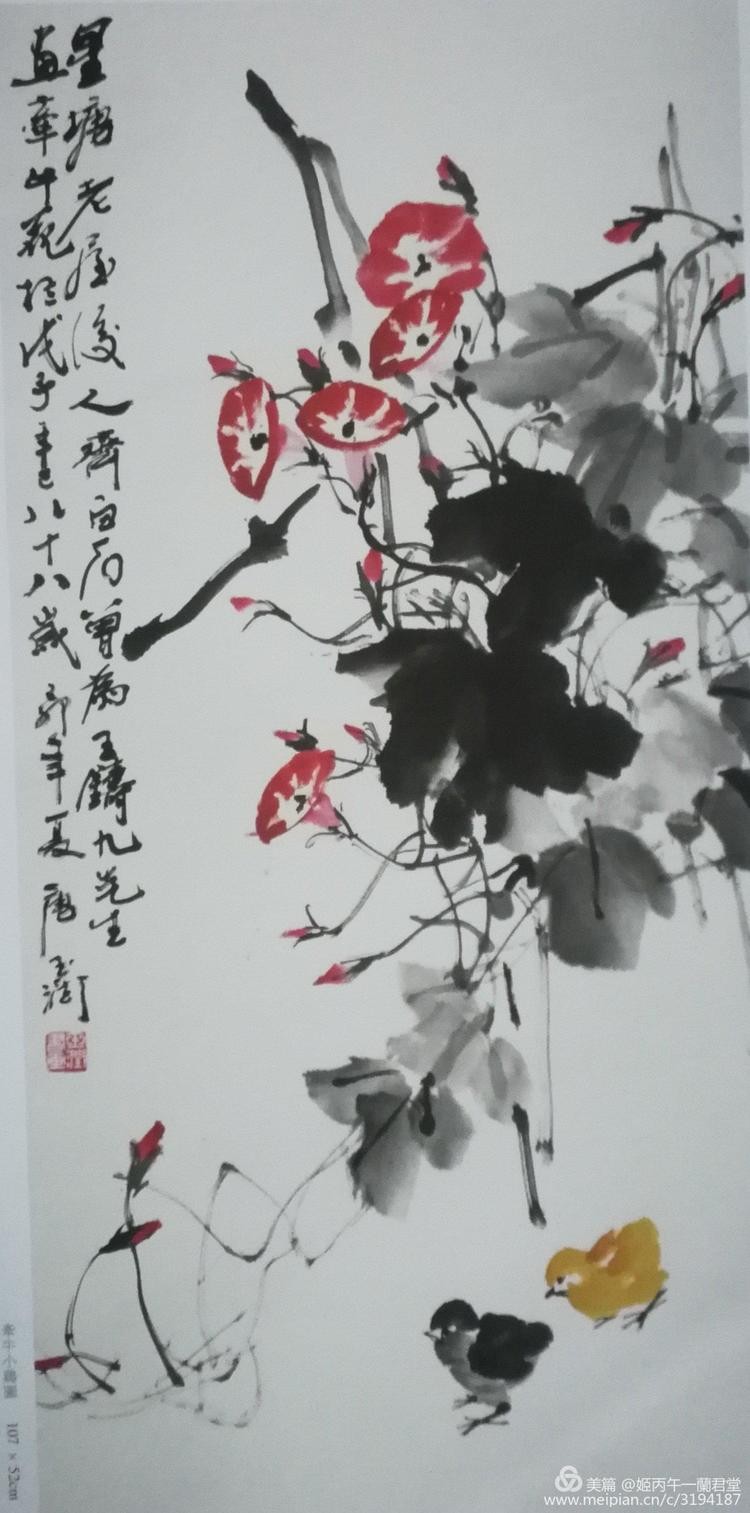 星塘老屋後人齊白石曾為王鑄九先生
畫牽牛花於戊子年已八十八歲 卯年夏 唐玉潤
牽牛小鷄圖 107 × 52cm
美篇 @姬丙午一蘭君堂
www.meipian.cn/c/3194187